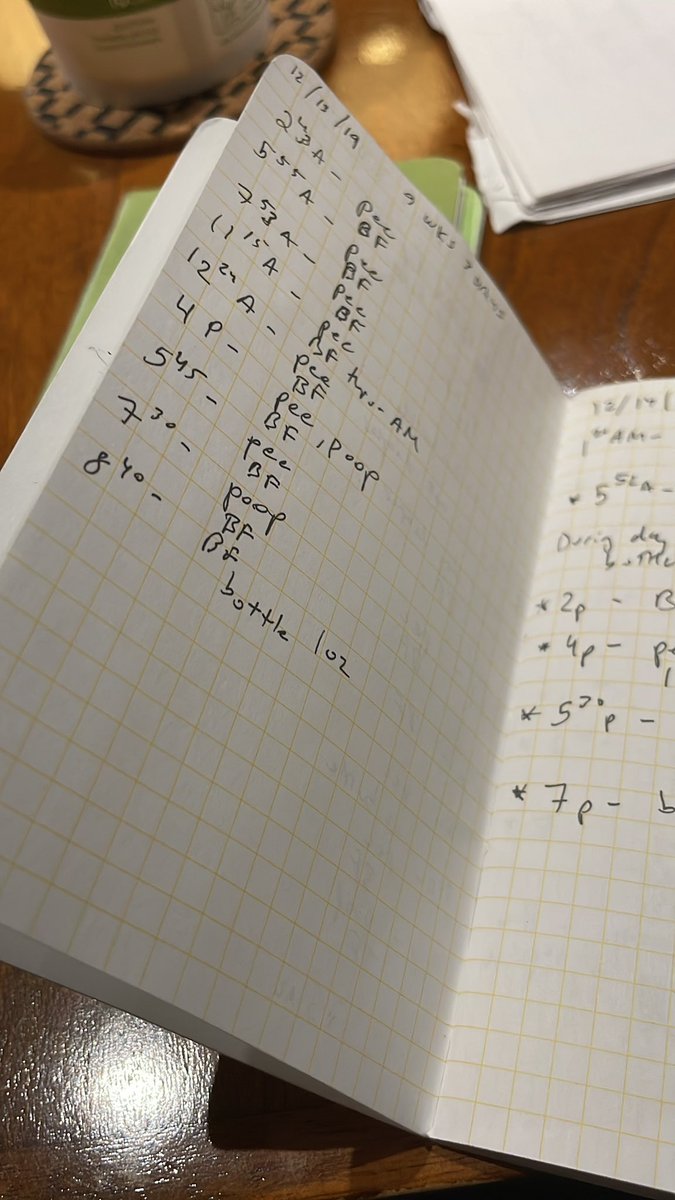 12/13/19 9 WKS 3 DAYS
2 A - pee
BF
5 55 A - pee
BF
7 53 A - pee
BF
11 15 A - pee
BF
12 24 A - pee
BF AM
4 P - pee, poop
BF
5 45 - pee
BF
7 30 - poop
BF
8 40 - BF
bottle 1oz
12/14/
1 AM -
* 5 52 A -
During day
* 2p - B
* 4p - pe
* 5 30 p -
* 7p - b